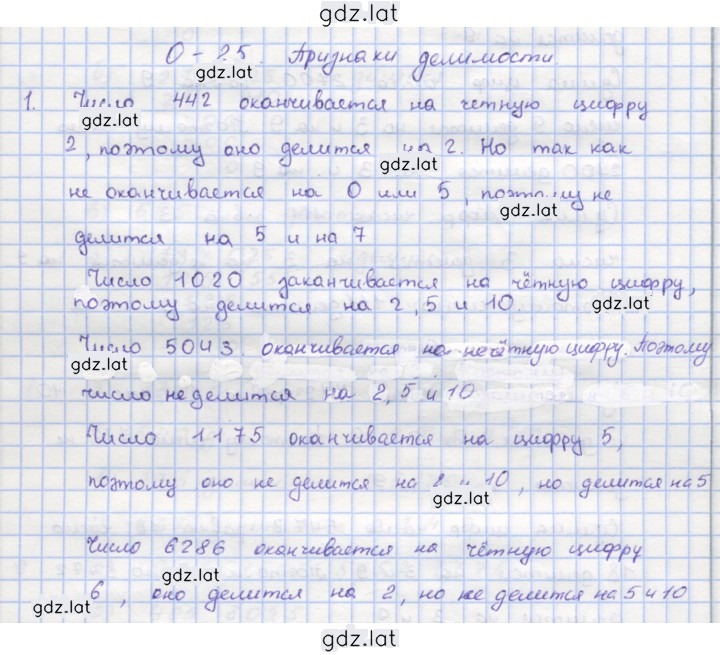 gdz.lat
О-25. Признаки делимости
gdz.lat
1. Число 442 оканчивается на четную цифру
gdz.lat
2, поэтому оно делится на 2. Но так как
gdz.lat
не оканчивается на 0 или 5, поэтому не
gdz.lat
делится на 5 и на 7
Число 1020 заканчивается на чётную цифру,
поэтому делится на 2, 5 и 10.
gdz.lat
Число 5043 оканчивается на нечётную цифру. Поэтому
gdz.lat
число не делится на 2, 5 и 10
Число 1175 оканчивается на цифру 5,
поэтому оно не делится на 2 и 10, но делится на 5
gdz.lat
Число 6286 оканчивается на чётную цифру
gdz.lat
6, оно делится на 2, но не делится на 5 и 10
gdz.lat
gdz.lat